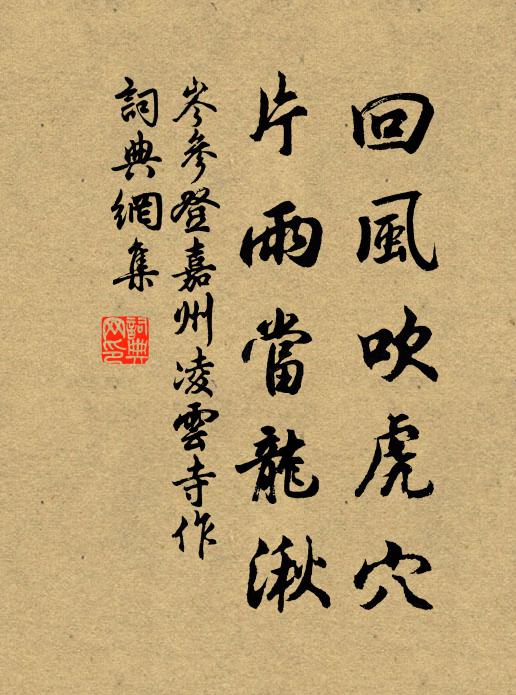 回風吹虎穴
片雨當龍湫
岑參登嘉州凌雲寺作
詞典網集
詞典網印